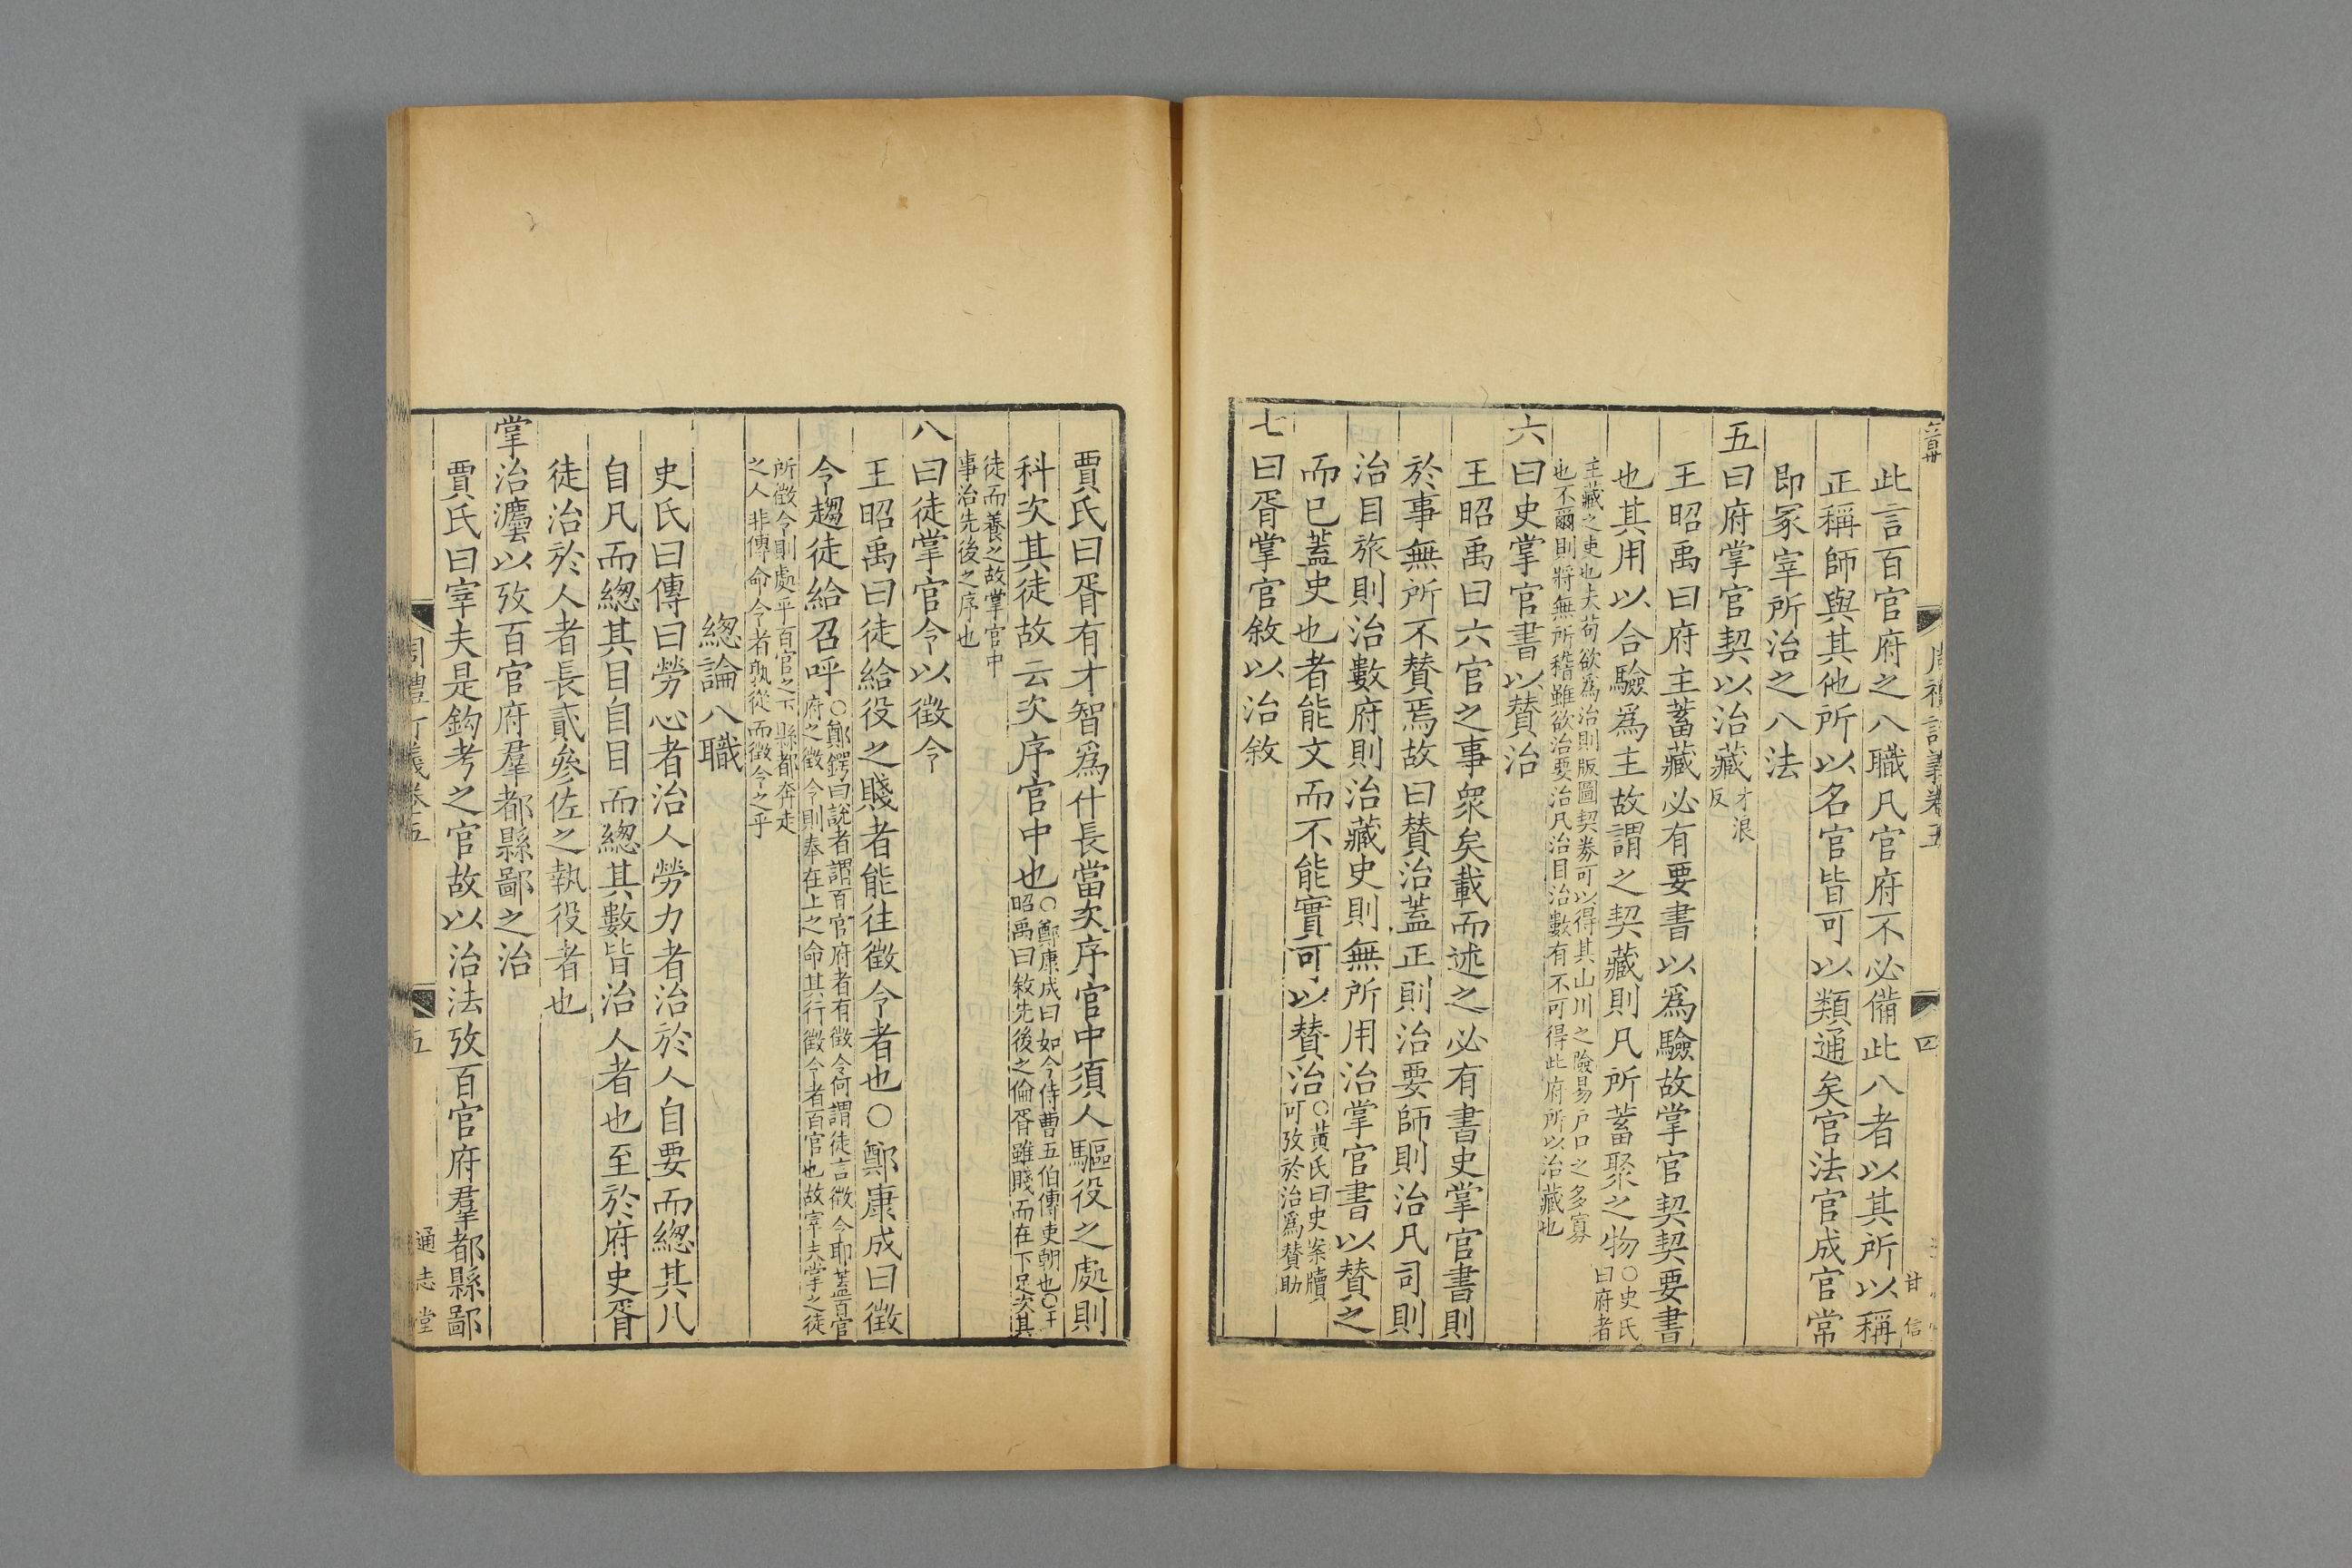 此言百官府之八職凡官府不必備此八者以其所以稱
正稱師與其他所以名官皆可以類通矣官法官成官常
即冢宰所治之八法
五曰府掌官契以治藏才浪反
王昭禹曰府主蓄藏必有要書以爲驗故掌官契契要書
也其用以合驗爲主故謂之契藏則凡所蓄聚之物○史氏曰府者
主藏之吏也夫苟欲爲治則版圖契券可以得其山川之險易戶口之多寡
也不爾則將無所稽雖欲治要治凡治目治數有不可得此府所以治藏也
六曰史掌官書以贊治
王昭禹曰六官之事衆矣載而述之必有書史掌官書則
於事無所不贊焉故曰贊治蓋正則治要師則治凡司則
治目旅則治數府則治藏史則無所用治掌官書以贊之
而已蓋史也者能文而不能實可以贊治○黃氏曰史案牘可攷於治爲贊助
七曰胥掌官敘以治敘
賈氏曰胥有才智爲什長當次序官中須人驅役之處則
科次其徒故云次序官中也○鄭康成曰如今侍曹五伯傳吏朝也○王昭禹曰敘先後之倫胥雖賤而在下足次其
徒而養之故掌官中
事治先後之序也
八曰徒掌官令以徵令
王昭禹曰徒給役之賤者能往徵令者也○鄭康成曰徵
令趨徒給召呼○鄭鍔曰說者謂百官府者有徵令何謂徒言徵令耶蓋百官府之徵令則奉在上之命其行徵令者百官也故宰夫掌之徒
所徵令則處乎百官之下縣都奔走
之人非傳命令者孰從而徵令之乎
緫論八職
史氏曰傳曰勞心者治人勞力者治於人自要而緫其凡
自凡而緫其目自目而緫其數皆治人者也至於府史胥
徒治於人者長貳參佐之執役者也
掌治灋以攷百官府羣都縣鄙之治
賈氏曰宰夫是鈎考之官故以治法攷百官府羣都縣鄙
周禮訂義卷五
四
甘信
五
通志堂